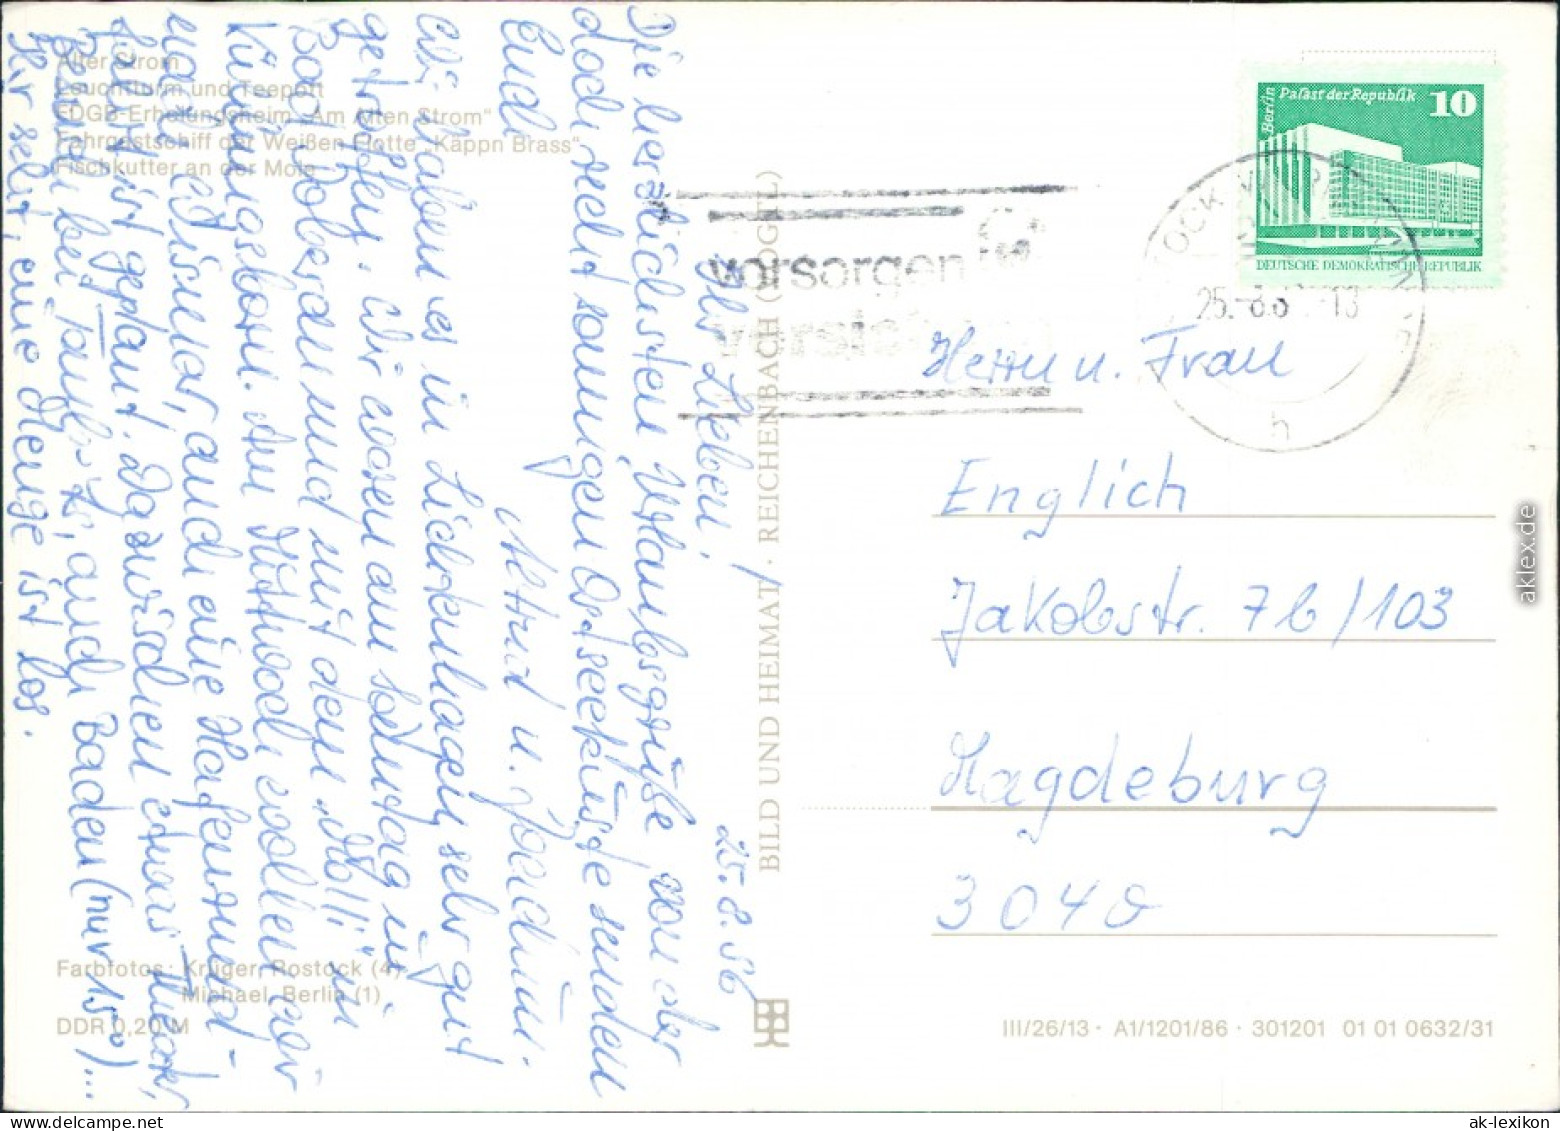 Alter Strom
Leuchtturm und Teepott
FDGB-Erholungsheim „Am Alten Strom“
Fahrgastschiff der Weißen Flotte „Käppn Brass“
Fischkutter an der Mole
25.8.86
Ihr Lieben!
Die herzlichsten Urlaubsgrüße von der
doch recht sonnigen Ostseeküste senden
Euch
Astrid u. Joachim.
Wir haben es in Lichtenhagen sehr gut
getroffen. Wir waren am Sonntag in
Bad Doberan und mit dem „Molli“ in
Kühlungsborn. Am Mittwoch wollen wir
nach Wismar, auch eine Hafenrund-
fahrt ist geplant. Dazwischen etwas Theater,
Besuch bei Tante, auch Baden (nur 15°)...
Ihr seht, eine Menge ist los.
Farbfotos: Krüger, Rostock (4)
Michael, Berlin (1)
DDR 0,20 M
BILD UND HEIMAT · REICHENBACH (VOGTL)
vorsorgen
versichern
Berlin Palast der Republik 10
DEUTSCHE DEMOKRATISCHE REPUBLIK
25.-8.8 -13
h
Herrn u. Frau
Englich
Jakobstr. 7b/103
Magdeburg
3040
III/26/13 · A1/1201/86 · 301201 01 01 0632/31
aklex.de
ak-lexikon